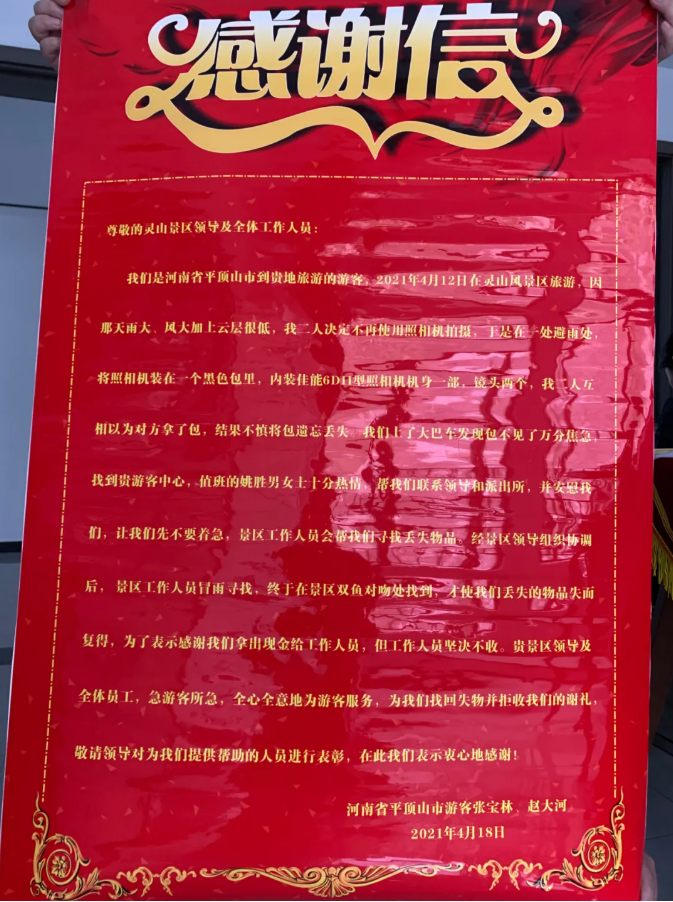 感谢信
尊敬的灵山景区领导及全体工作人员：
我们是河南省平顶山市到贵地旅游的游客，2021年4月12日在灵山风景区旅游，因
那天雨大、风大加上云层很低，我二人决定不再使用照相机拍摄，于是在一处避雨处，
将照相机装在一个黑色包里，内装佳能6D口型照相机机身一部，镜头两个，我二人互
相以为对方拿了包，结果不慎将包遗忘丢失。我们上了大巴车发现包不见了万分焦急，
找到贵游客中心，值班的姚胜男女士十分热情，帮我们联系领导和派出所，并安慰我
们，让我们先不要着急，景区工作人员会帮我们寻找丢失物品。经景区领导组织协调
后，景区工作人员冒雨寻找，终于在景区双鱼对吻处找到，才使我们丢失的物品失而
复得，为了表示感谢我们拿出现金给工作人员，但工作人员坚决不收。贵景区领导及
全体员工，急游客所急，全心全意地为游客服务，为我们找回失物并拒收我们的谢礼，
敬请领导对为我们提供帮助的人员进行表彰，在此我们表示衷心地感谢！
河南省平顶山市游客张宝林、赵大河
2021年4月18日